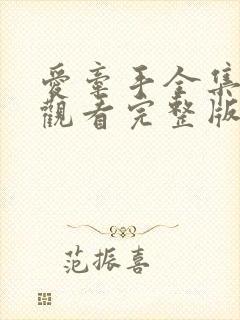 愛牽手全集
觀看完整版
范振喜